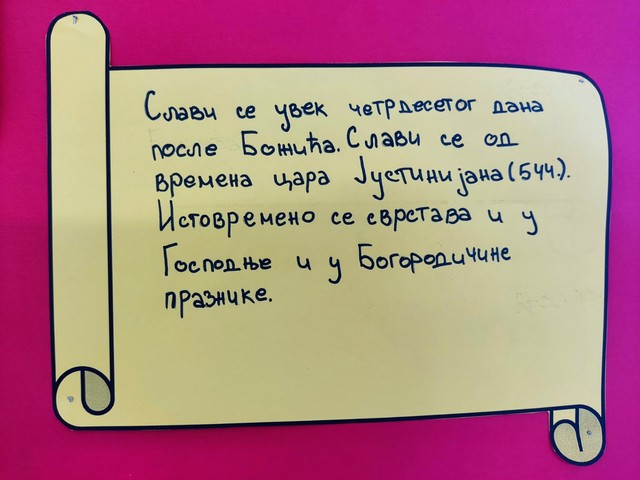 Слави се увек четрдесетог дана
после Божића. Слави се од
времена цара Јустинијана (544.).
Истовремено се сврстава и у
Господње и у Богородичине
празнике.